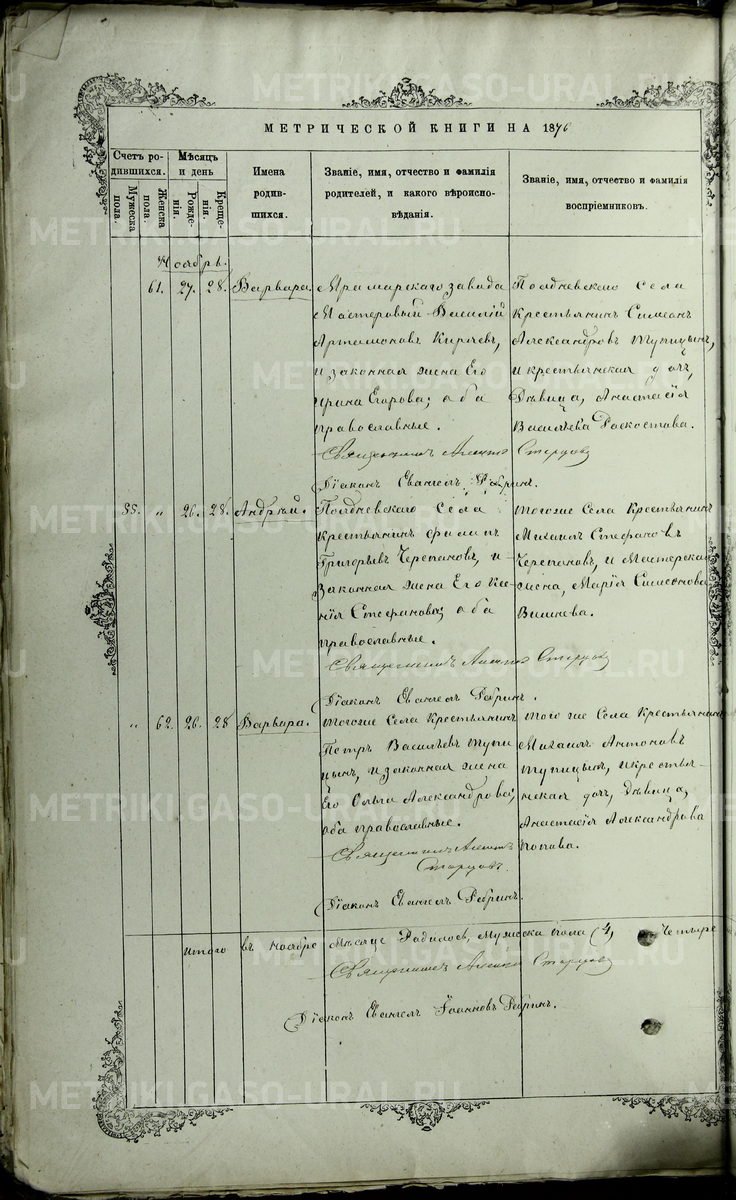 МЕТРИЧЕСКОЙ КНИГИ НА 1876
Счетъ родившихся.
Мужеска пола.
Женска пола.
Мѣсяцъ и день
Рожденія.
Крещенія.
Имена родившихся.
Званіе, имя, отчество и фамилія родителей, и какого вѣроисповѣданія.
Званіе, имя, отчество и фамилія воспріемниковъ.
Ноябрь.
61. 27. 28. Варвара.
Мраморскаго завода
Мастеровый Василій
Артамоновъ Киряевъ,
и законная жена Его
Ирина Егорова; оба
православные.
Полдневскаго села
Крестьянинъ Симеонъ
Александровъ Тупицынъ,
и крестьянская дочь,
Дѣвица, Анастасія
Васильева
Священникъ Старцовъ
Діаконъ Евангелъ Рябринъ.
„ 26. 28. Андрей.
Полдневскаго Села
крестьянинъ Филипъ
Григорьевъ Черепановъ, и
Законная жена Его Ксенія
Стефанова; оба
православные.
тогоже Села Крестьянинъ
Михаилъ Стефановъ
Черепановъ, и Мастерская
жена, Марія Симеонова
Священникъ Старцовъ
Діаконъ Евангелъ Рябринъ.
„ 62. 26. 28 Варвара.
тогоже Села Крестьянинъ
Петръ Васильевъ Тупицынъ,
и законная жена
Его Ольга Александрова;
оба православные.
того же Села Крестьянинъ
Михаилъ Антоновъ
Тупицынъ, и крестьянская
дочь, Дѣвица,
Анастасія Александрова
Попова.
Священникъ
Старцовъ.
Діаконъ Евангелъ Рябринъ.
Итого въ ноябре Мѣсяце Родилось, Мужеска пола (4) Четыре
Священникъ Старцовъ
Діаконъ Евангелъ Іоанновъ Рябринъ.
METRIKI.GASO-URAL.RU